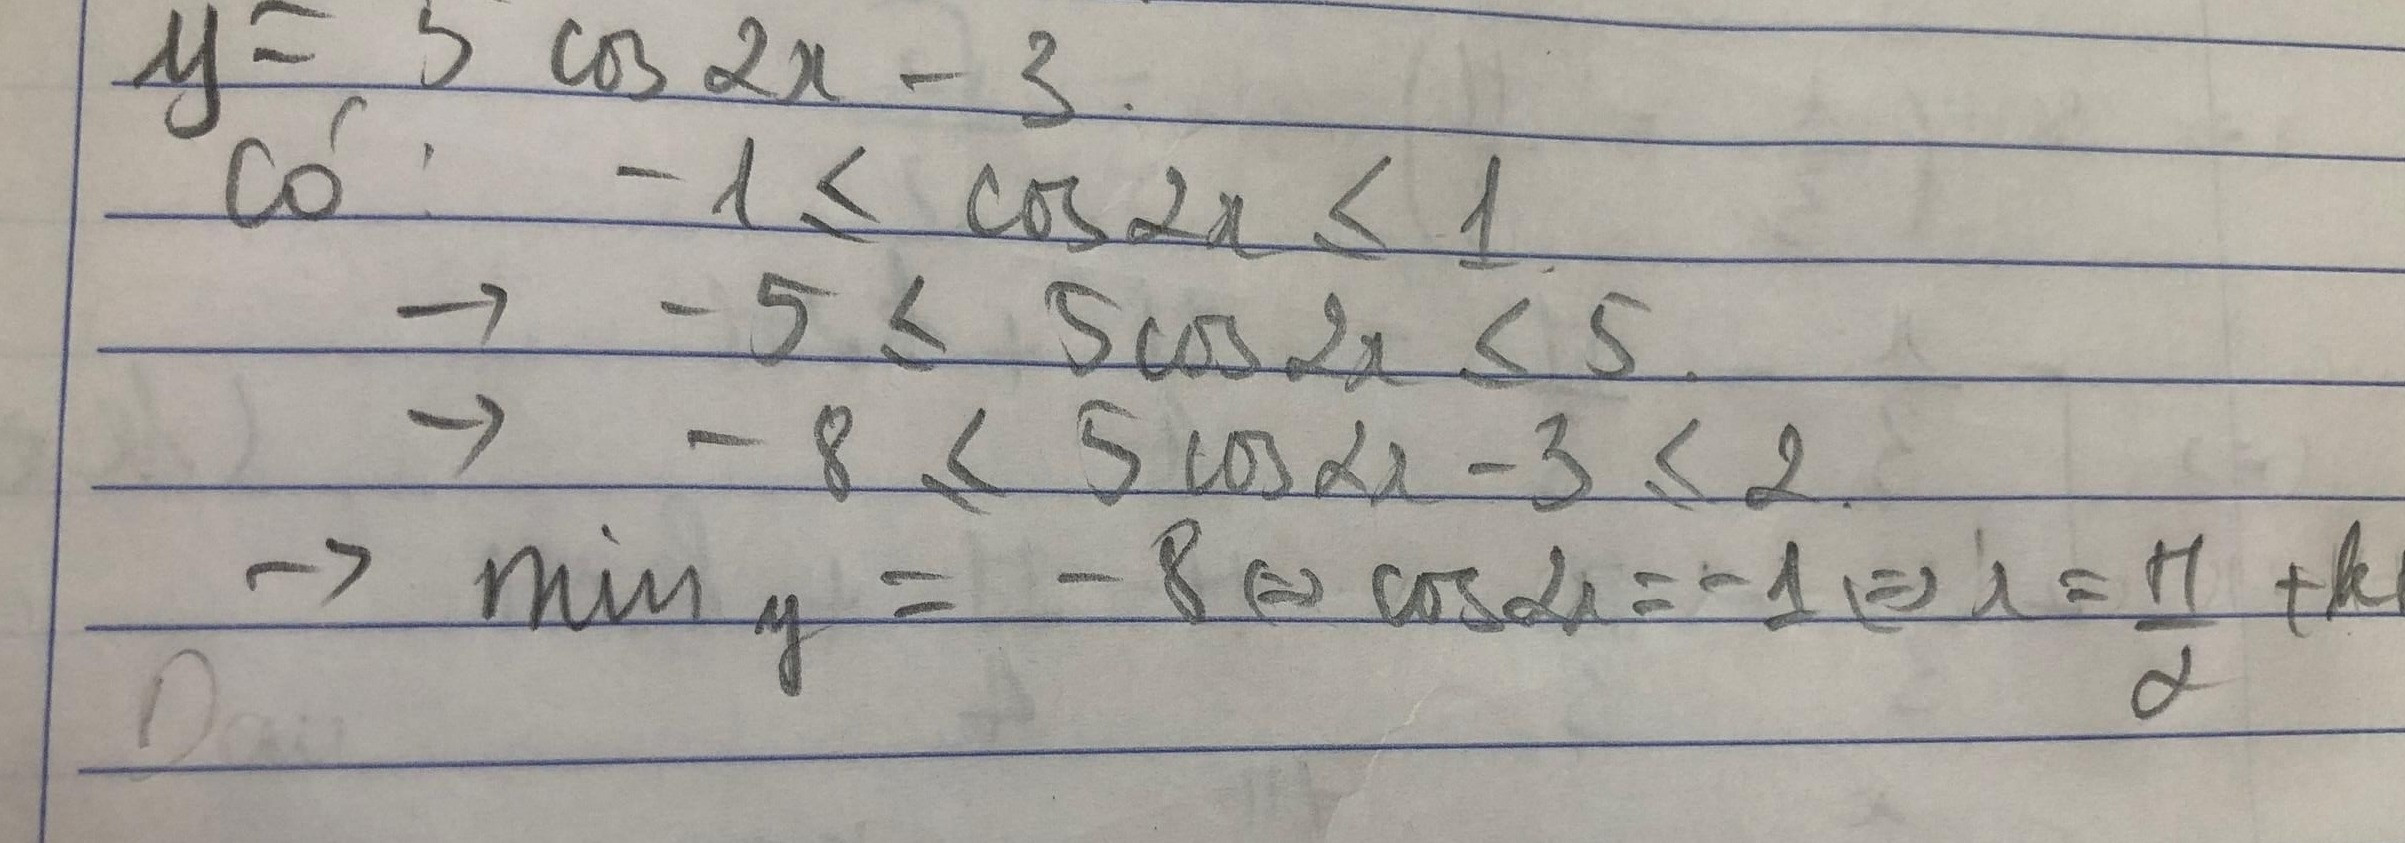 y = 5 cos 2x - 3.
Có: -1 ≤ cos 2x ≤ 1.
→ -5 ≤ 5 cos 2x ≤ 5.
→ -8 ≤ 5 cos 2x - 3 ≤ 2.
→ min y = -8 ⇔ cos 2x = -1 ⇔ x = π/2 + k